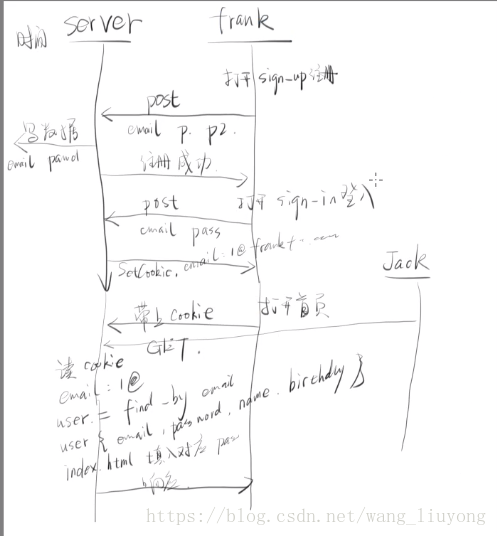 时间 server frank
打开 sign-up 注册
post
email p. p2.
写数据
email pawd
注册成功
post
打开 sign-in 登入
email pass
SetCookie, email: 1@frank
Jack
带上 Cookie
打开首页
GET.
读 cookie
email: 1@
user = find_by email
user { email, password, name, birthday }
index.html 填入对应 pass
响应
https://blog.csdn.net/wang_liuyong